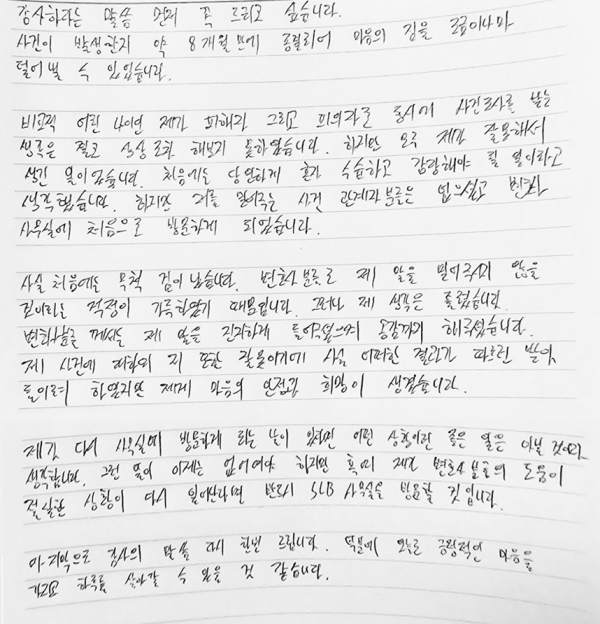 감사하다는 말씀 먼저 꼭 드리고 싶습니다.
사건이 발생한지 약 8개월만에 종결되어 마음의 짐을 조금이나마
덜어낼 수 있었습니다.
비교적 어린 나이인 제가 피해자 그리고 피의자로 동시에 사건조사를 받는
생각은 절대 상상조차 해보지 못하였습니다. 하지만 모두 제가 잘못해서
생긴 일이었습니다. 처음에는 당연하게 혼자 수습하고 감당해야 될 일이라고
생각했습니다. 하지만 저를 믿어주는 사건 관계자분들은 없으셨고 변호사
사무실에 처음으로 방문하게 되었습니다.
사실 처음에는 무척 겁이 났습니다. 변호사분들도 제 말을 믿어주지 않을
것이라는 걱정이 가득하였기 때문입니다. 그러나 제 생각은 틀렸습니다.
변호사분들 께서는 제 말을 진지하게 들어주셨으며 공감까지 해주셨습니다.
제 사건에 대하여 저 또한 잘못이기에 사실 어떠한 결과가 따르던 받아
들이려 하였지만 제게 마음의 안정과 희망이 생겼습니다.
제가 다시 사무실에 방문하게 되는 날이 있다면 어떤 상황이던 좋은 일은 아닐 것이라
생각합니다. 그런 일이 이제는 없어야 하지만 혹여 제가 변호사분들의 도움이
절실한 상황이 다시 일어난다면 반드시 SLB 사무실을 방문할 것입니다.
마지막으로 감사의 말씀 다시 한번 드립니다. 덕분에 오늘도 긍정적인 마음을
가지고 하루를 살아갈 수 있을 것 같습니다.